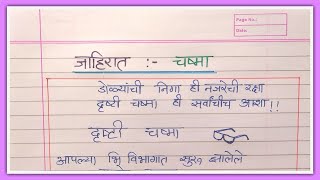 Page No.:
Date:
जाहिरात :- चष्मा
डोळ्यांची निगा ही नजरेची रक्षा
दृष्टी चष्मा ही सर्वांचीच आशा!!
दृष्टी चष्मा
आपल्या भि विभागात सुरु झालेले